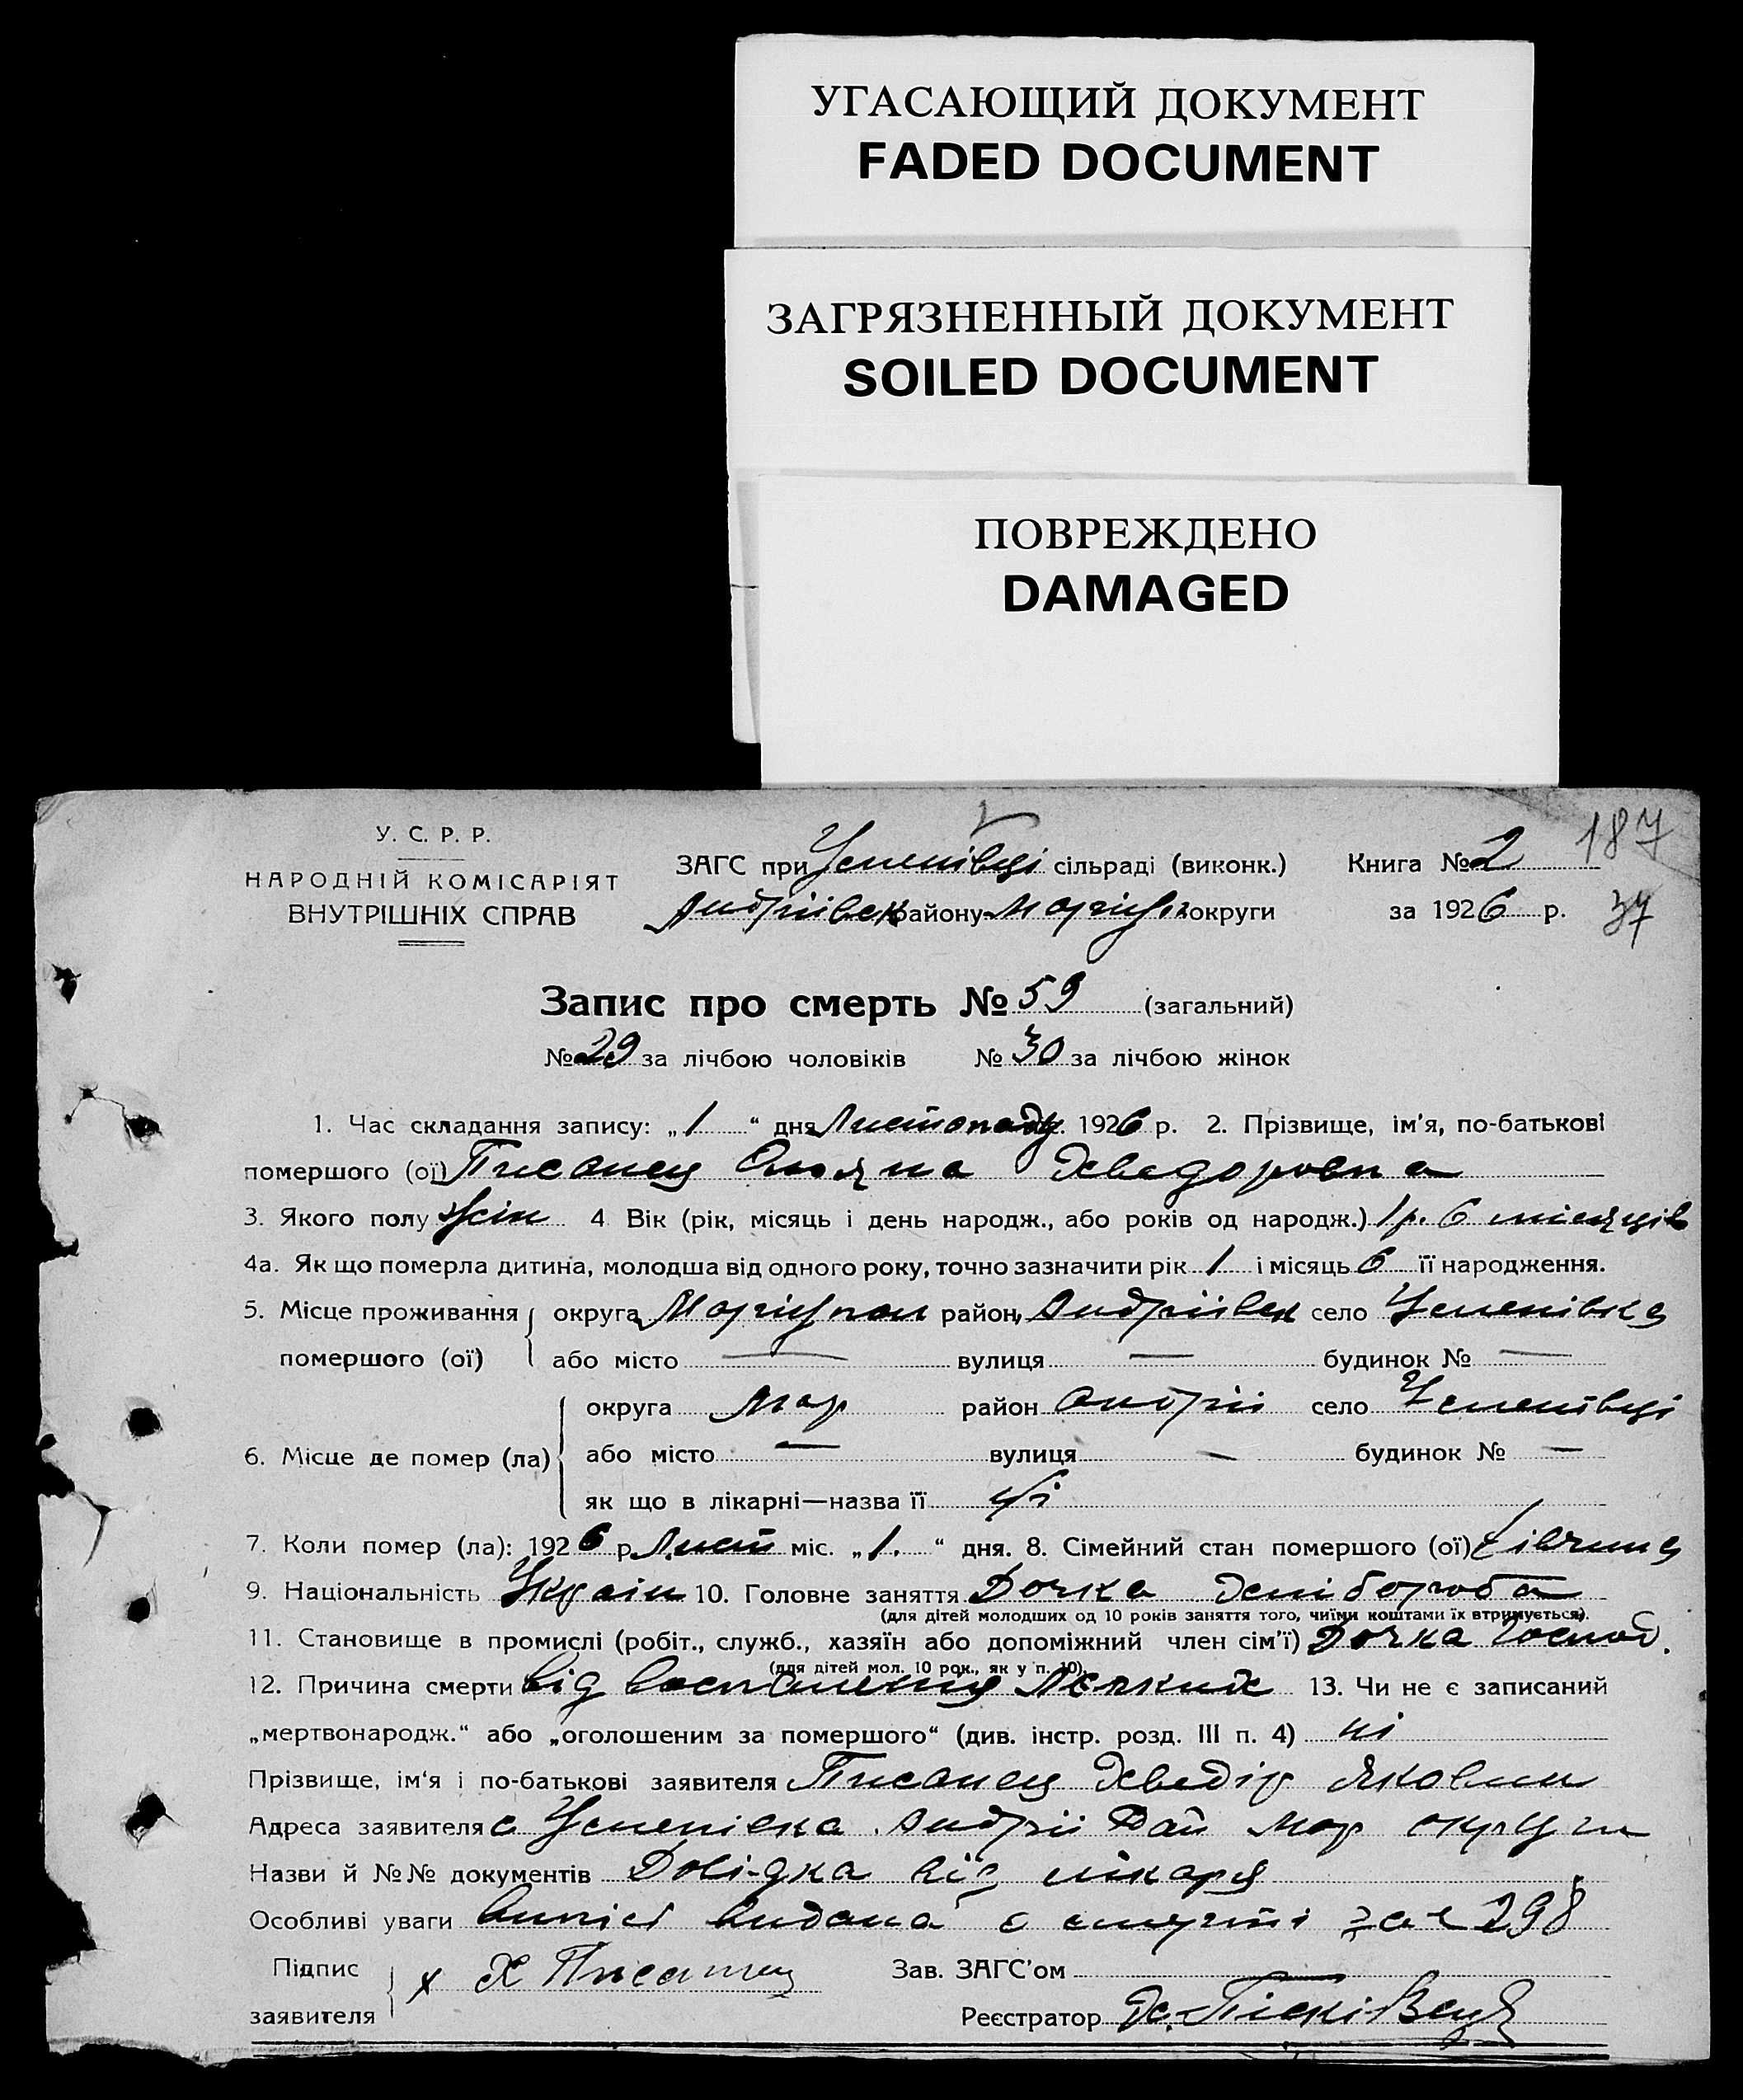 УГАСАЮЩИЙ ДОКУМЕНТ
FADED DOCUMENT
ЗАГРЯЗНЕННЫЙ ДОКУМЕНТ
SOILED DOCUMENT
ПОВРЕЖДЕНО
DAMAGED
187
У. С. Р. Р.
НАРОДНІЙ КОМІСАРІЯТ
ВНУТРІШНІХ СПРАВ
ЗАГС при Успенівці сільраді (виконк.) Книга № 2
Андріівск району Маріуп округи за 1926 р. 37
Запис про смерть № 59 (загальний)
№ 29 за лічбою чоловіків № 30 за лічбою жінок
1. Час складання запису: „1“ дня Листопаду 1926 р. 2. Прізвище, ім'я, по-батькові
помершого (ої) Писанец Хведоровна
3. Якого полу жін 4 Вік (рік, місяць і день народж., або років од народж.) 1 р. 6 місяців
4а. Як що померла дитина, молодша від одного року, точно зазначити рік 1 і місяць 6 її народження.
5. Місце проживання округа Маріупол район Андріівск село Успенівка
помершого (ої) або місто — вулиця — будинок № —
округа Мар район Андріі село Успенівці
6. Місце де помер (ла) або місто — вулиця — будинок № —
як що в лікарні—назва її
7. Коли помер (ла): 1926 р. Лист міс. „1.“ дня. 8. Сімейний стан помершого (ої) дівчина
9. Національність Украін 10. Головне заняття Дочка хлібороба
(для дітей молодших од 10 років заняття того, чиїми коштами їх втримується).
11. Становище в промислі (робіт., служб., хазяїн або допоміжний член сім'ї) Дочка господ.
(для дітей мол. 10 рок., як у п. 10).
12. Причина смерти від воспаленія Лєхких 13. Чи не є записаний
„мертвонародж.“ або „оголошеним за помершого“ (див. інстр. розд. III п. 4) ні
Прізвище, ім'я і по-батькові заявителя Писанец Хведір Якович
Адреса заявителя с Успенівка Андріі Рай Мар округи
Назви й №№ документів Довідка від лікаря
Особливі уваги випісі видана о смерті за № 298
Підпис х Х Писанец Зав. ЗАГС'ом
заявителя Реєстратор